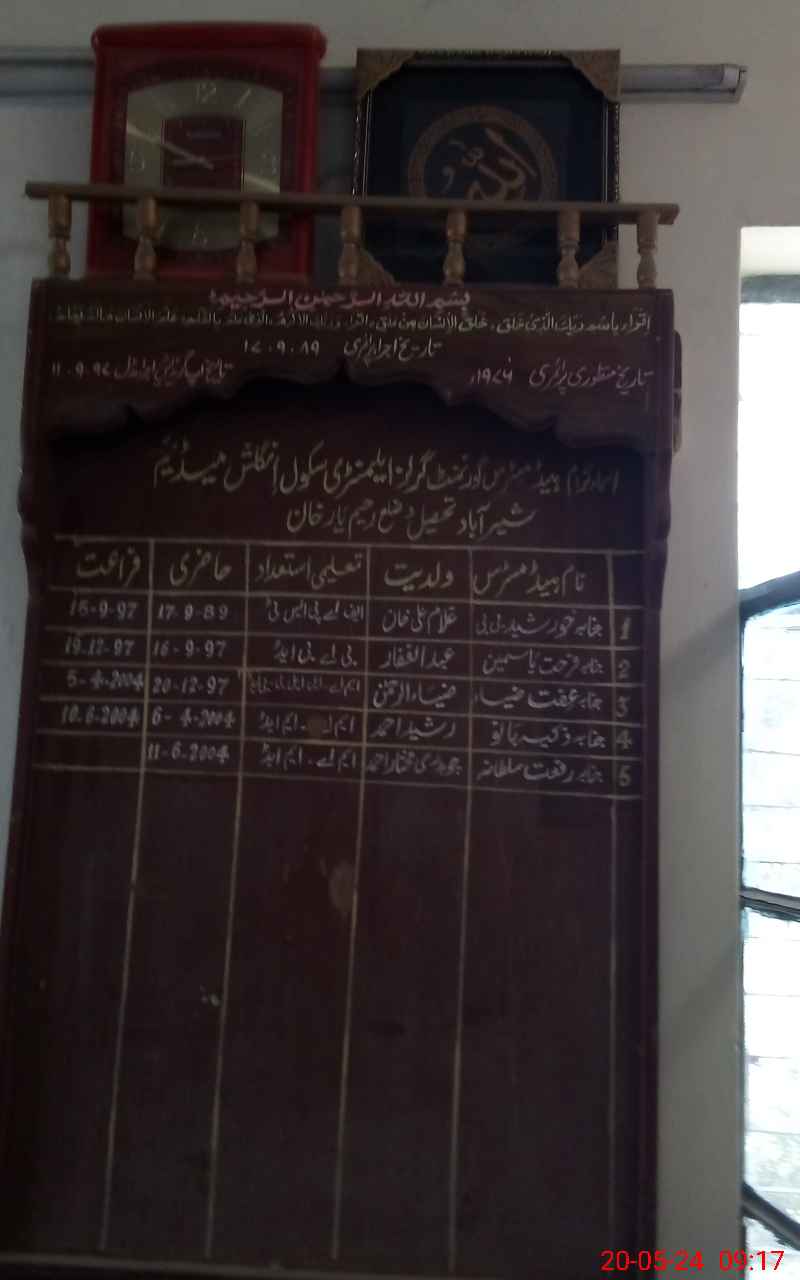 اللہ
بسم اللہ الرحمن الرحیم
اقراء باسم ربك الذی خلق۔ خلق الانسان من علق۔ اقراء وربك الاكرم۔ الذی علم بالقلم۔ علم الانسان مالم یعلم
تاریخ اجراء پرائمری 17.9.89
تاریخ منظوری پرائمری 1976ء
تاریخ اپ گریڈ 11.9.97
اسماء گرام ہیڈمسٹرس گورنمنٹ گرلز ایلیمنٹری سکول انگلش میڈیم
شیر آباد تحصیل و ضلع رحیم یار خان
نام ہیڈمسٹرس ولدیت تعلیمی استعداد حاضری فراغت
1 جنابہ خورشید بی بی غلام علی خان ایف اے پی ایس ٹی 17-9-89 15-9-97
2 جنابہ فرحت یاسمین عبدالغفار بی اے بی ایڈ 16-9-97 19.12-97
3 جنابہ عفت ضیاء ضیاء الرحمن ایم اے 20-12-97 5-4-2004
4 جنابہ ذکیہ بانو رشید احمد ایم اے۔ ایم ایڈ 6-4-2004 10.6-2004
5 جنابہ رفعت سلطانہ چوہدری مختار احمد ایم اے۔ ایم ایڈ 11-6.2004
20-05-24 09:17